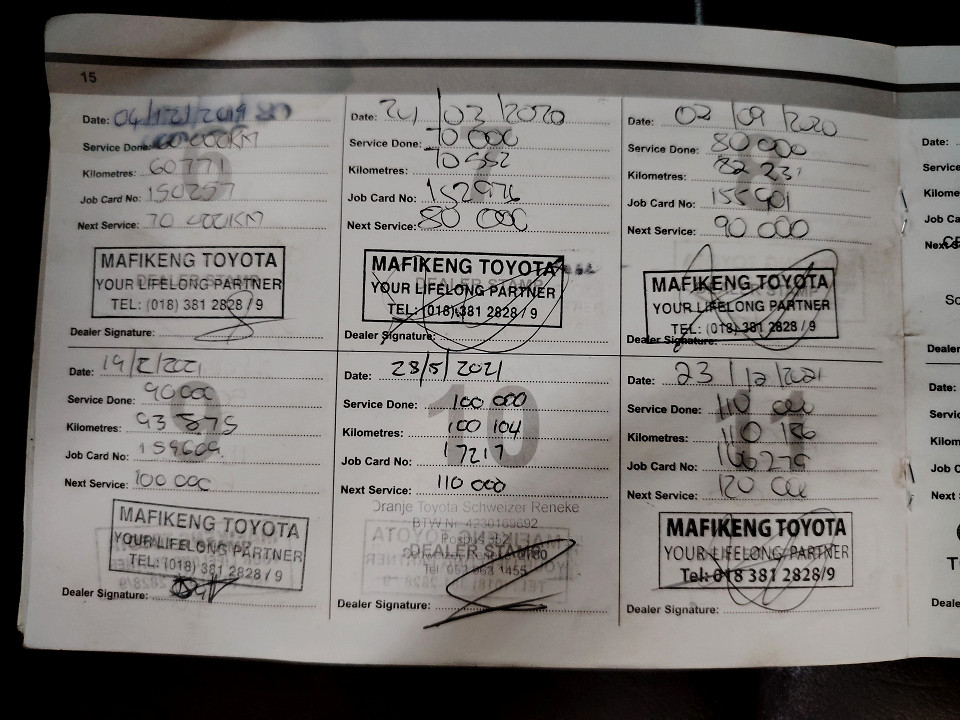 15
Date: 04/12/2019
Service Done: 60 000KM
Kilometres: 60771
Job Card No: 150257
Next Service: 70 000KM
MAFIKENG TOYOTA
YOUR LIFELONG PARTNER
TEL: (018) 381 2828 / 9
Dealer Signature:
Date: 24/03/2020
Service Done: 70 000
Kilometres: 70 552
Job Card No: 152976
Next Service: 80 000
MAFIKENG TOYOTA
YOUR LIFELONG PARTNER
TEL: (018) 381 2828 / 9
Dealer Signature:
Date: 02/09/2020
Service Done: 80 000
Kilometres: 82 231
Job Card No: 155901
Next Service: 90 000
MAFIKENG TOYOTA
YOUR LIFELONG PARTNER
TEL: (018) 381 2828 / 9
Dealer Signature:
Date: 19/2/2021
Service Done: 90 000
Kilometres: 93 875
Job Card No: 159609
Next Service: 100 000
MAFIKENG TOYOTA
YOUR LIFELONG PARTNER
TEL: (018) 381 2828 / 9
Dealer Signature:
10
Date: 28/5/2021
Service Done: 100 000
Kilometres: 100 104
Job Card No: 17217
Next Service: 110 000
Oranje Toyota Schweizer Reneke
BTW Nr
DEALER STAMP
Tel 053 963 1455
Dealer Signature:
Date: 23/12/2021
Service Done: 110 000
Kilometres: 110 186
Job Card No: 166279
Next Service: 120 000
MAFIKENG TOYOTA
YOUR LIFELONG PARTNER
Tel: 018 381 2828/9
Dealer Signature:
Date:
Service
Kilome
Job Ca
Next S
Dealer
Date:
Servic
Kilom
Job C
Next
Deale